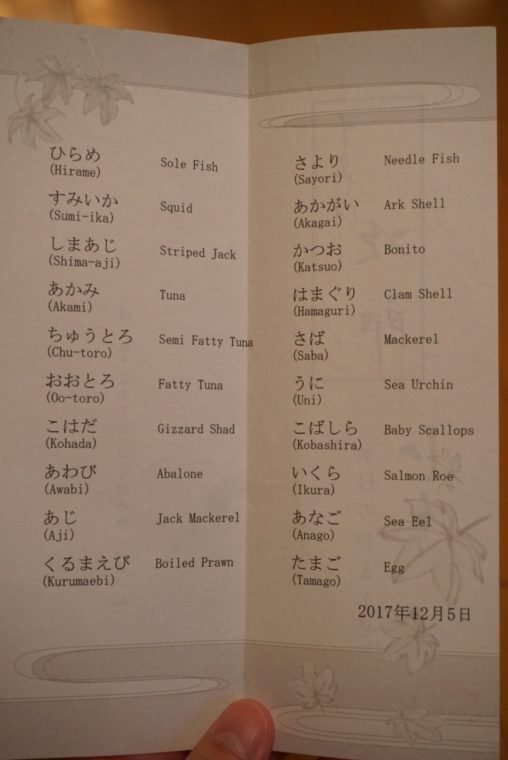 ひらめ
(Hirame) Sole Fish
すみいか
(Sumi-ika) Squid
しまあじ
(Shima-aji) Striped Jack
あかみ
(Akami) Tuna
ちゅうとろ
(Chu-toro) Semi Fatty Tuna
おおとろ
(Oo-toro) Fatty Tuna
こはだ
(Kohada) Gizzard Shad
あわび
(Awabi) Abalone
あじ
(Aji) Jack Mackerel
くるまえび
(Kurumaebi) Boiled Prawn
さより
(Sayori) Needle Fish
あかがい
(Akagai) Ark Shell
かつお
(Katsuo) Bonito
はまぐり
(Hamaguri) Clam Shell
さば
(Saba) Mackerel
うに
(Uni) Sea Urchin
こばしら
(Kobashira) Baby Scallops
いくら
(Ikura) Salmon Roe
あなご
(Anago) Sea Eel
たまご
(Tamago) Egg
2017年12月5日